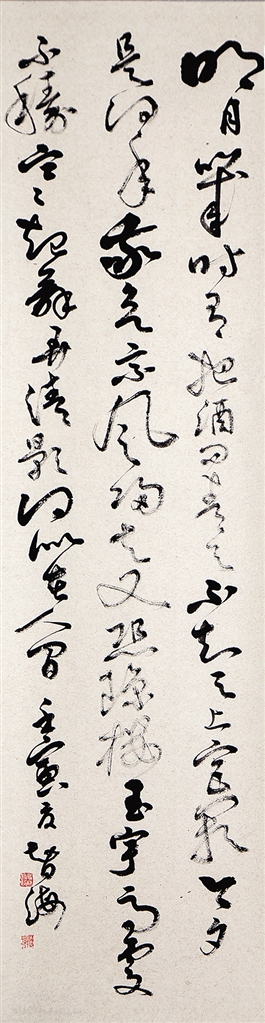 明月幾時有把酒問青天不知天上宮闕今夕
是何年我欲乘風歸去又恐瓊樓玉宇高處
不勝寒起舞弄清影何似在人間 壬寅夏智海